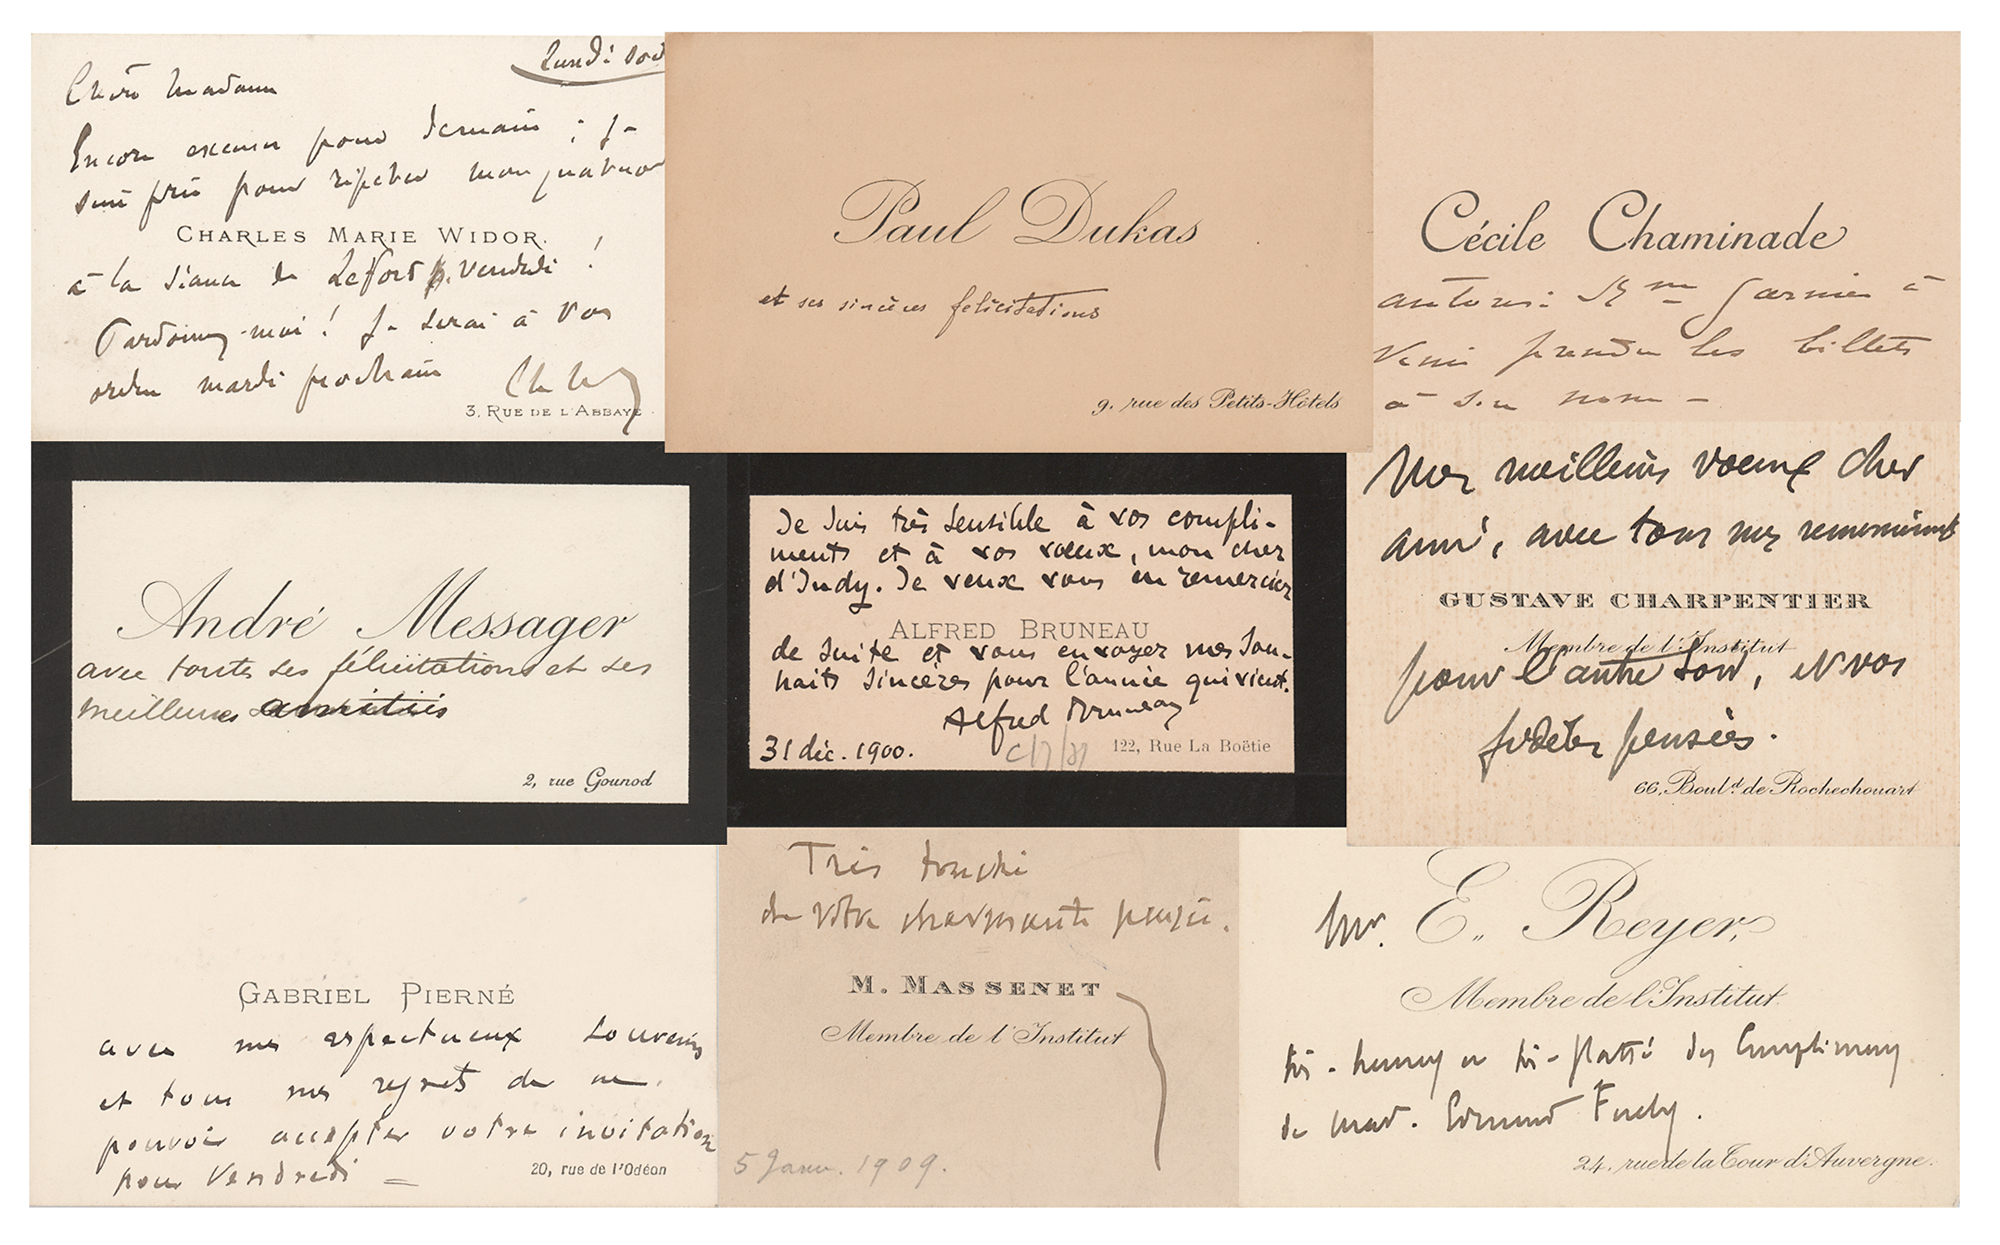 Lundi soir
Chère Madame
Encore excuser pour demain ; je
suis pris pour répéter mon quatuor
CHARLES MARIE WIDOR.
à la séance de Lefort vendredi !
Pardonnez-moi ! Je serai à vos
ordres mardi prochain
3, RUE DE L'ABBAYE
Paul Dukas
et ses sincères félicitations
9, rue des Petits-Hôtels
Cécile Chaminade
autorise Mme Garnier à
venir prendre les billets
à son nom -
André Messager
avec toutes ses félicitations et ses
meilleures amitiés
2, rue Gounod
Je suis très sensible à vos compli-
ments et à vos voeux, mon cher
d'Indy. Je veux vous en remercier
ALFRED BRUNEAU
de suite et vous envoyer mes sou-
haits sincères pour l'année qui vient.
Alfred Bruneau
31 déc. 1900.
122, Rue La Boëtie
Mes meilleurs voeux cher
ami, avec tous mes remerciements
GUSTAVE CHARPENTIER
Membre de l'Institut
pour l'autre soir, et vos
fidèles pensées.
66, Boulд de Rochechouart
GABRIEL PIERNÉ
avec mes respectueux souvenirs
et tous mes regrets de ne
pouvoir accepter votre invitation
pour Vendredi -
20, rue de l'Odéon
Très touché
de votre charmante pensée.
M. MASSENET
Membre de l'Institut
5 Janv. 1909.
Mr. E. Reyer,
Membre de l'Institut
très-heureux et très-flatté des Compliments
de Mad. Edmund Fuchs.
24, rue de la Tour d'Auvergne.